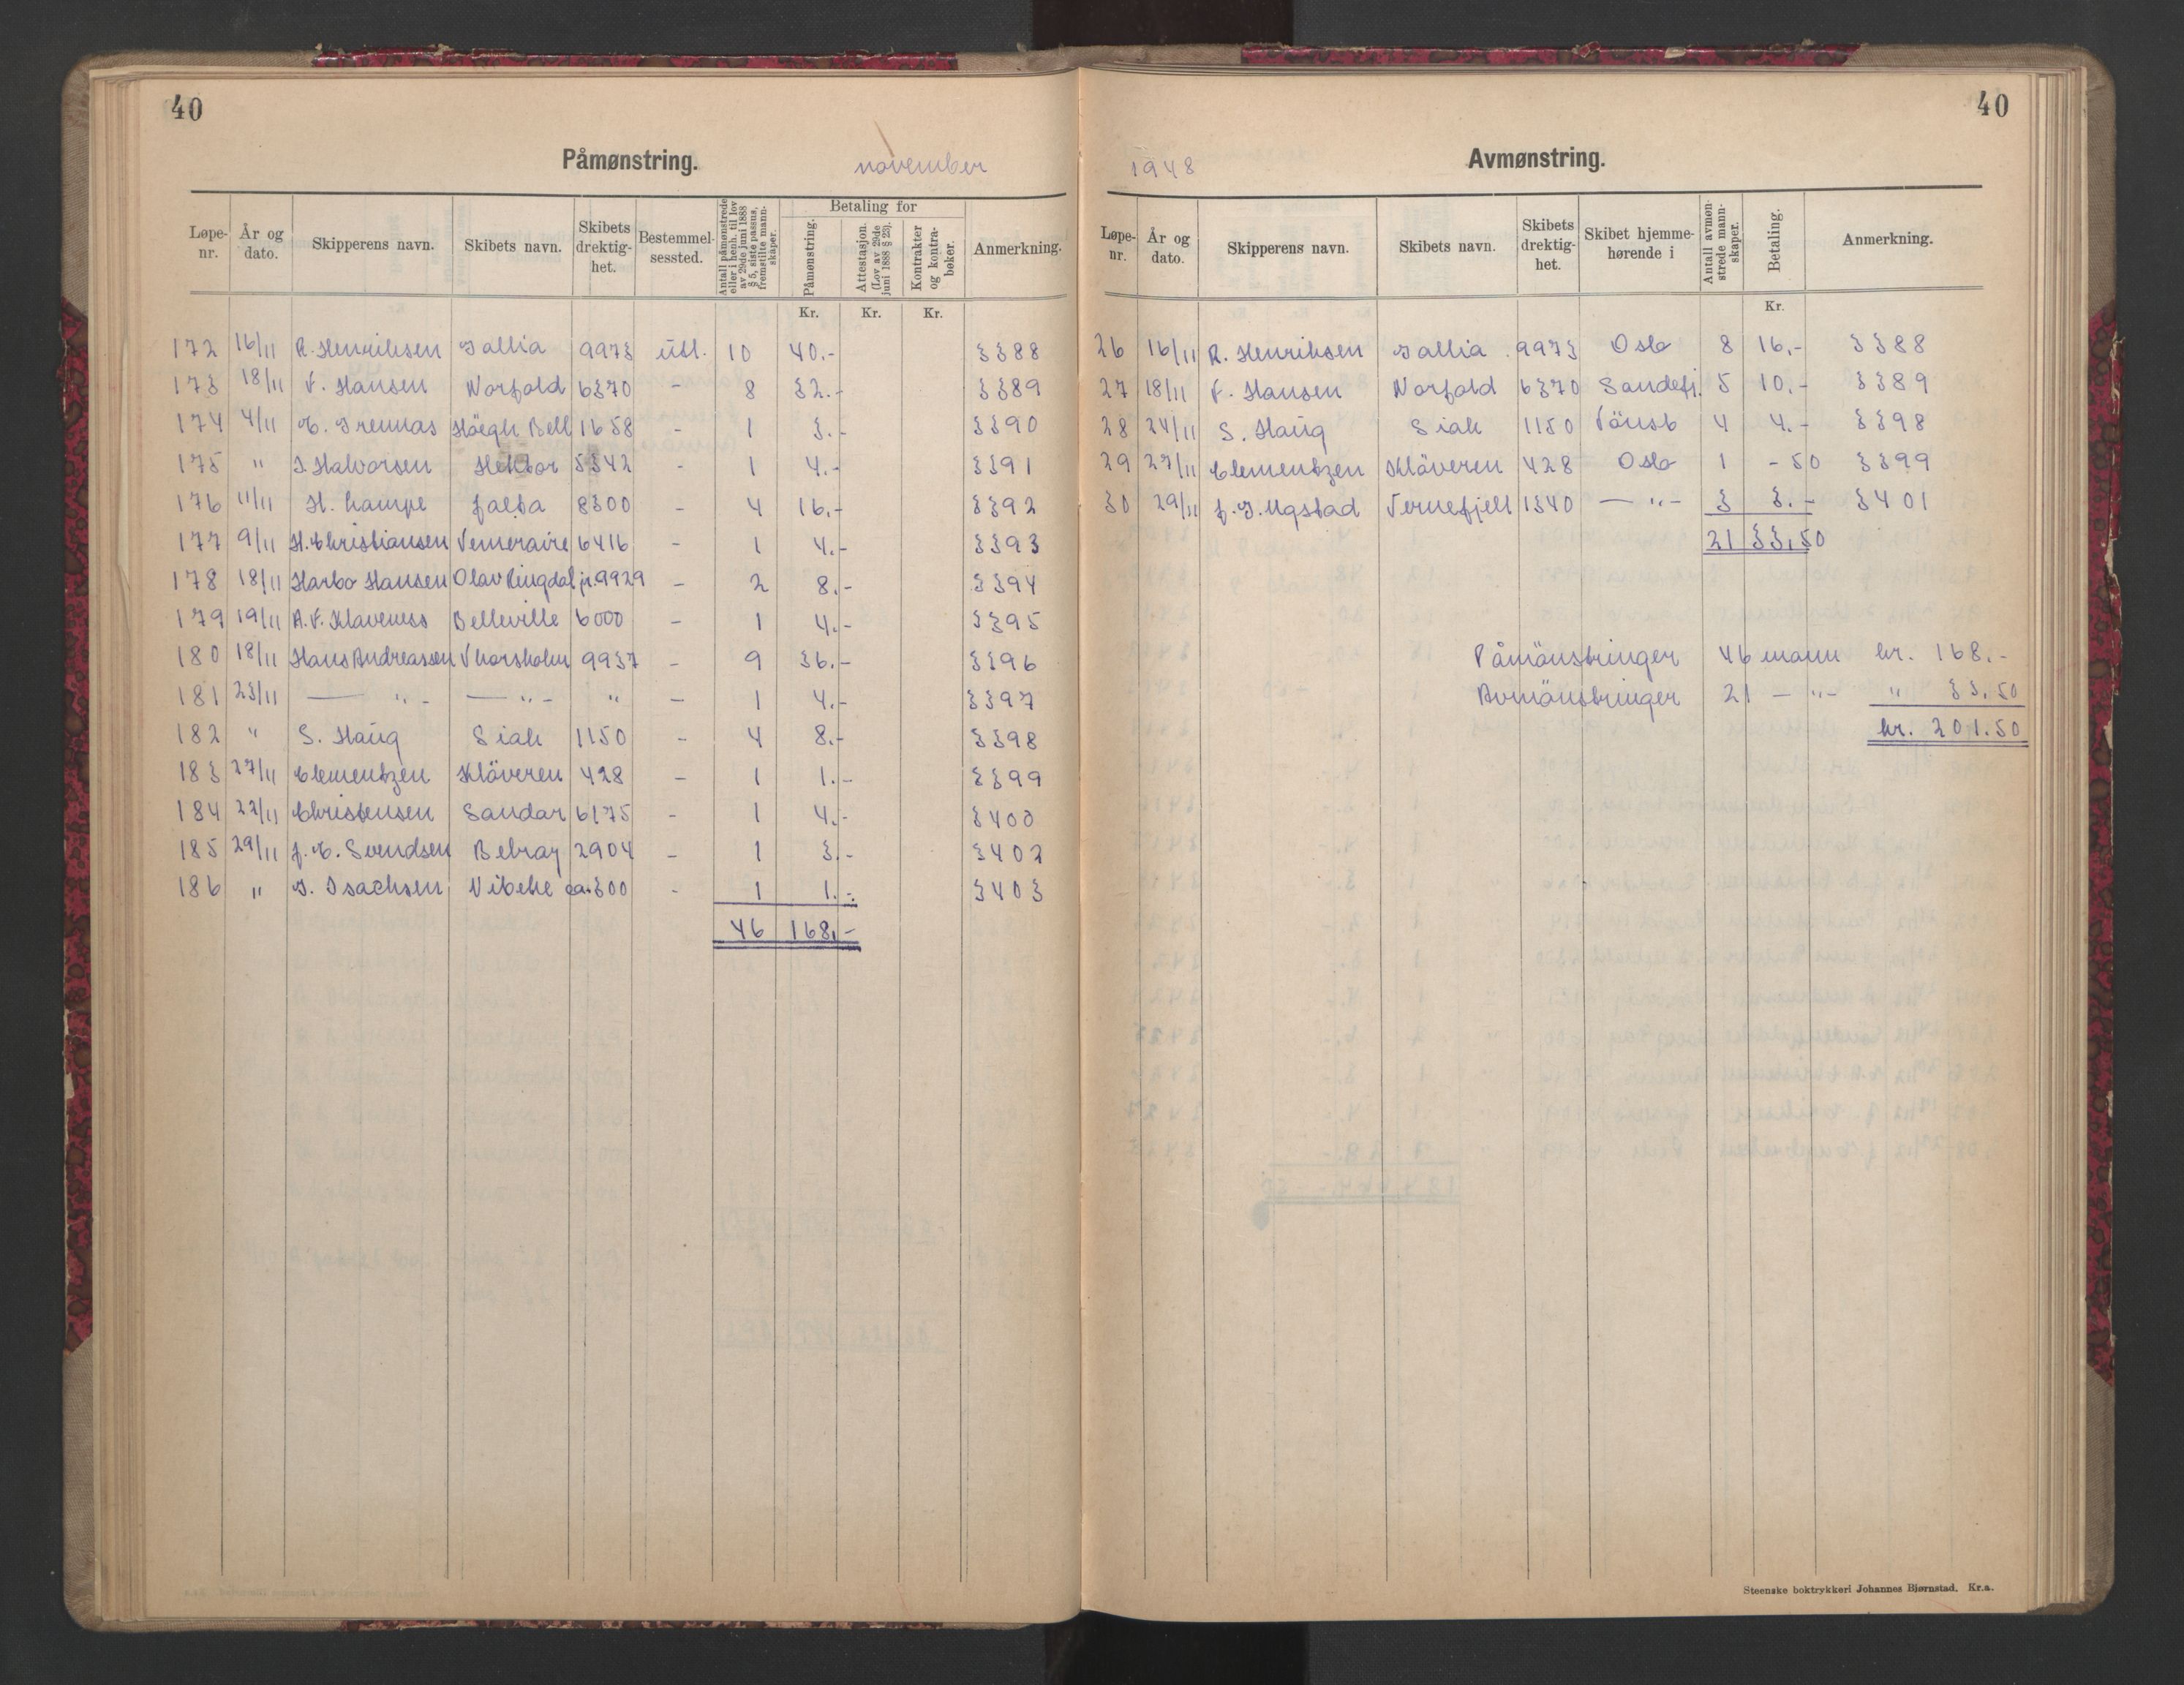 40
Påmønstring. november
Løpe-nr. År og dato. Skipperens navn. Skibets navn. Skibets drektig-het. Bestemmel-sessted. Antall påmønstrede eller i henh. til lov av 29de juni 1888 § 5, siste passus, fremstilte mann-skaper. Betaling for Påmønstring. Attestasjon. (Lov av 29de juni 1888 § 23). Kontrakter og kontra-bøker. Anmerkning.
Kr. Kr. Kr.
172 16/11 R. Henriksen Tallia 9973 utl. 10 40.- 3388
173 18/11 F. Hansen Norfold 6370 - 8 32.- 3389
174 4/11 E. Grennas Höegh Bell 1658 - 1 3.- 3390
175 " J. Halvorsen Hektor 5342 - 1 4.- 3391
176 11/11 H. Lampe Jalta 8300 - 4 16.- 3392
177 9/11 H. Christiansen Temeraire 6416 - 1 4.- 3393
178 18/11 Harbo Hansen Olav Ringdal jr. 9929 - 2 8.- 3394
179 19/11 A.F. Klaveness Belleville 6000 - 1 4.- 3395
180 18/11 Hans Andreassen Thorsholm 9937 - 9 36.- 3396
181 23/11 — " - — " - " - 1 4.- 3397
182 " S. Haug Siak 1150 - 4 8.- 3398
183 27/11 Clementzen Kläveren 428 - 1 1.- 3399
184 22/11 Christensen Sandar 6175 - 1 4.- 3400
185 29/11 J.E. Svendsen Belray 2904 - 1 3.- 3402
186 " J. Isachsen Vibeke ca. 300 - 1 1.- 3403
46 168,-
40
1948 Avmønstring.
Løpe-nr. År og dato. Skipperens navn. Skibets navn. Skibets drektig-het. Skibet hjemme-hørende i Antall avmøn-strede mann-skaper. Betaling. Anmerkning.
Kr.
26 16/11 R. Henriksen Tallia 9973 Oslo 8 16.- 3388
27 18/11 F. Hansen Norfold 6370 Sandefj. 5 10.- 3389
28 24/11 S. Haug Siak 1150 Tönsb 4 4.- 3398
29 27/11 Clementzen Kläveren 428 Oslo 1 - 50 3399
30 29/11 J.J. Ugstad Fernefjell 1340 — " - 3 3.- 3401
21 33,50
Påmönstringer 46 mann kr. 168.-
Avmönstringer 21 - " - " 33.50
kr. 201.50
Steenske boktrykkeri Johannes Bjørnstad. Kr.a.